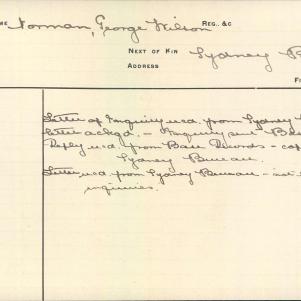 ME Norman, George Wilson REG. &C
NEXT OF KIN Sydney
ADDRESS
F
Letter of Enquiry recd. from Sydney
letter ackgd. – Enquiry sent Base
Reply recd. from Base Records – cop
Sydney Bureau.
Letter recd. from Sydney Bureau –
inquiries.